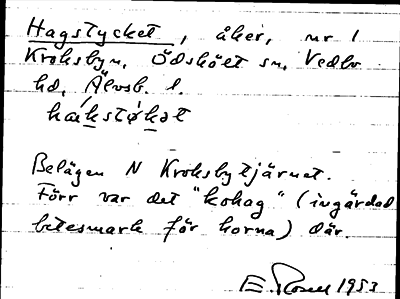 Hagstycket, åker, nr 1
Kroksbyn, Ödskölt sn, Vedbo
hd, Älvsb. l.
hákstỳkət
Belägen N Kroksbytjärnet.
Förr var det "kohag" (ingärdad
betesmark för korna) där.
E. Rosell 1953